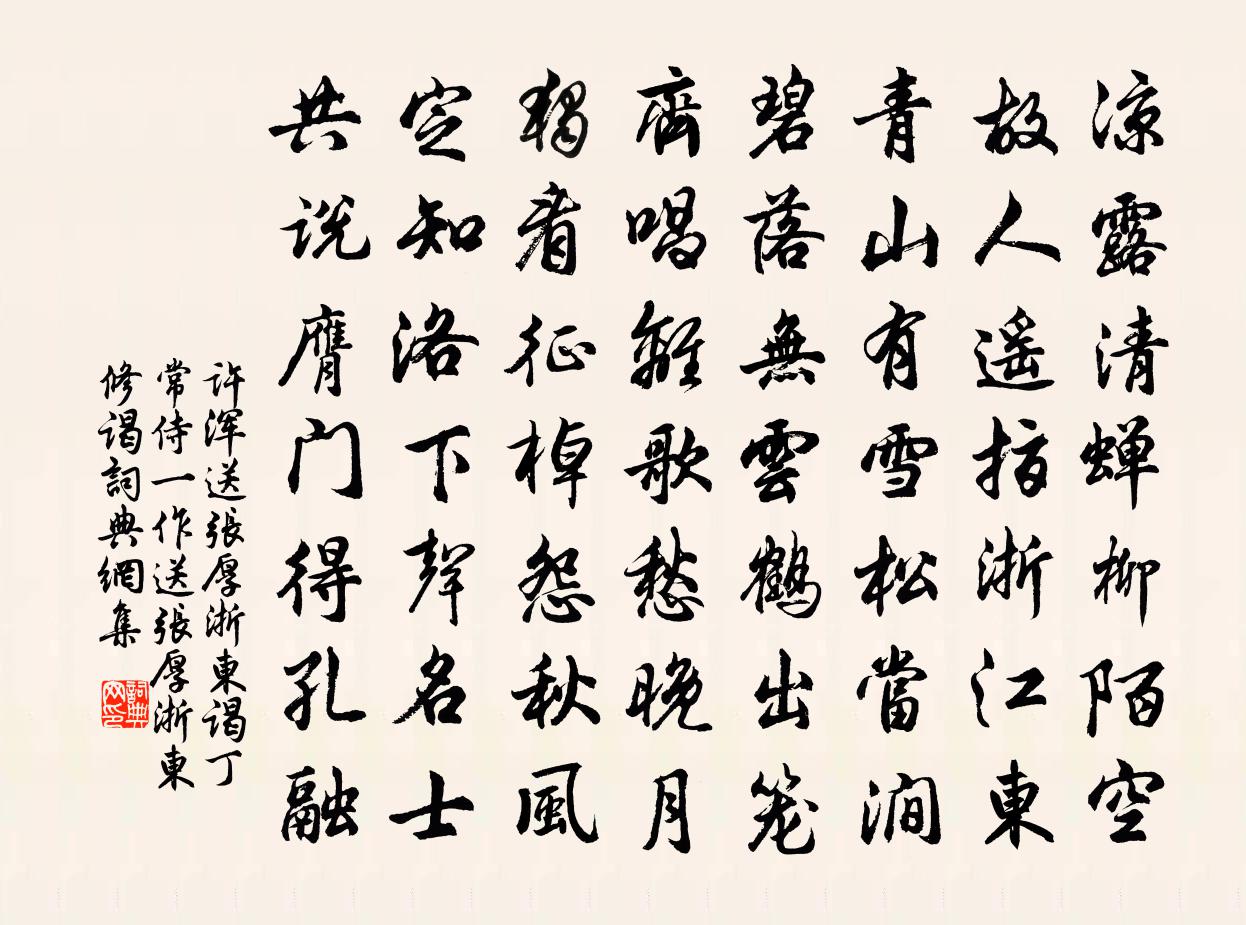 凉露清蝉柳陌空
故人遥指浙江東
青山有雪松當澗
碧落無雲鶴出笼
齊唱離歌愁晚月
獨看征棹怨秋風
定知洛下聲名士
共说膺门得孔融
许浑送張厚浙東谒丁
常侍一作送張厚浙東
修谒詞典網集
詞典网印